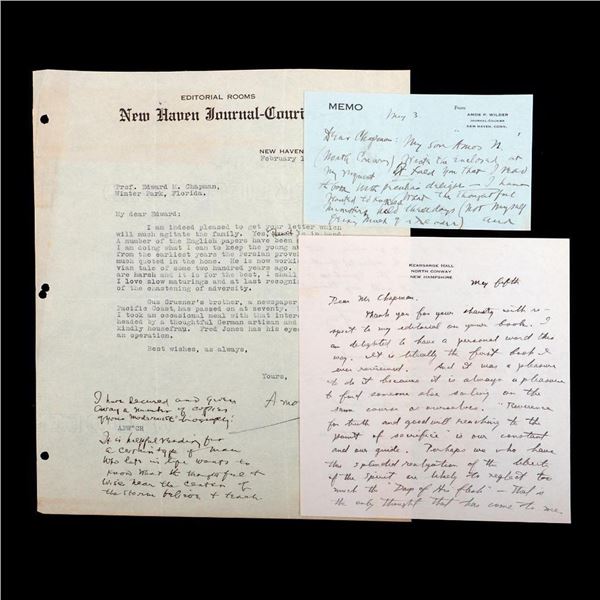 EDITORIAL ROOMS
New Haven Journal-Couri
NEW HAVEN
February 1
Prof. Edward M. Chapman,
Winter Park, Florida.
My dear Edward:
I am indeed pleased to get your letter which
will much agitate the family. Yes, is in hand
A number of the English papers have been
I am doing what I can to keep the young
from the earliest years the Persian prover
much quoted in the home. He is now worki
vian tale of some two hundred years ago.
are harsh and it is for the best, I shall
I love slow maturings and at last recogni
of the chastening of adversity.
Gus Gruener's brother, a newspaper
Pacific Coast, has passed on at seventy. I
I took an occasional meal with that inter
headed by a thoughtful German artisan and
kindly housefrau. Fred Jones has his eyes
an operation.
Best wishes, as always,
Yours,
Amo
I have secured and given
away a number of copies
of your modernist biography.
APW*CH
It is helpful reading for
a certain type of man
who late in life wants to
know what the thoughtful &
wise near the center of
the storm believe & teach.
MEMO
From
AMOS P. WILDER
JOURNAL-COURIER
NEW HAVEN, CONN.
May 3
Dear Chapman: My son "Amos N."
(North Conway) wrote the enclosed at
my request. I told you that I read
the book with peculiar delight — I
wanted to what the thoughtful
these days (not myself
being much of a reader) and
KEARSARGE HALL
NORTH CONWAY
NEW HAMPSHIRE
May fifth
Dear Mr Chapman.
Thank you for your charity with re-
spect to my editorial on your book. I
am delighted to have a personal word this
way. It is literally the first book I
ever reviewed. And it was a pleasure
to do it because it is always a pleasure
to find someone else sailing on the
same course as ourselves. "Reverence
for truth and goodwill reaching to the
point of sacrifice" is our constant
and our guide. Perhaps we who have
this splendid realization of the liberty
of the Spirit are likely to neglect too
much the "Days of His flesh" — That is
the only thought that has come to me.